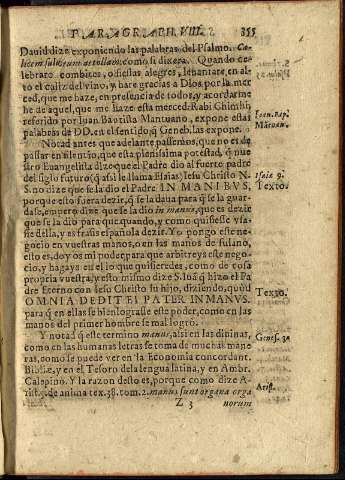 PARAGRAPH. VIII. 355
Dauid dize exponiendo las palabras del Psalmo. Ca-
licem salutarem accipiam. como si dixera. Quando ce-
lebrare combites, o fiestas alegres, leuantare, en al-
to el caliz del vino, y hare gracias a Dios por la mer
ced, que me haze, en presencia de todos, y acordarme
he de aquel, que me haze esta merced. Rabi Chimhi,
referido por Iuan Baptista Mantuano, expone estas
palabras de DD. en el sentido, q̃ Geneb. las expone.
Ioan. Bap.
Mātuan.
Notad antes que adelante passemos, que no es de
passar en silencio, que esta plenissima potestad, q̃ nue
stro Euangelista dize que el Padre dio al fuerte padre
del siglo futuro (q̃ assi le llama Elaias) Iesu Christo N.
Isaiæ 9.
S. no dize que se la dio el Padre IN MANIBVS,
Texto.
porque esto fuera dezir, q̃ se la daua para q̃ se la guar-
dase, empero dize que se la dio in manus, que es dezir
que se la dio para que quando, y como quisiesse vsa-
sse della, y es frasis española dezir. Yo pongo este ne-
gocio en vuestras manos, o en las manos de fulano,
esto es, doy os mi poder para que arbitreys este nego-
cio, y hagays en el lo que quisieredes, como de cosa
propria vuestra, y esto mismo dize S. Ioã q̃ hizo el Pa
dre Eterno con Iesu Christo su hijo, diziendo, quòd
OMNIA DEDIT EI PATER IN MANVS.
Texto.
para q̃ en ellas se bien lograsse este poder, como en las
manos del primer hombre se mal logrò.
Y notad q̃ este termino manus, assi en las diuinas,
Genes. 3.
como en las humanas letras se toma de muchas mane
ras, como se puede ver en la Economia concordant.
Bibliæ, y en el Tesoro de la lengua latina, y en Ambr.
Calepino. Y la razon desto es, porque como dize A-
rist. 3. de anima tex. 38. tom. 2. manus sunt organa orga
Arist.
Z 3 norum